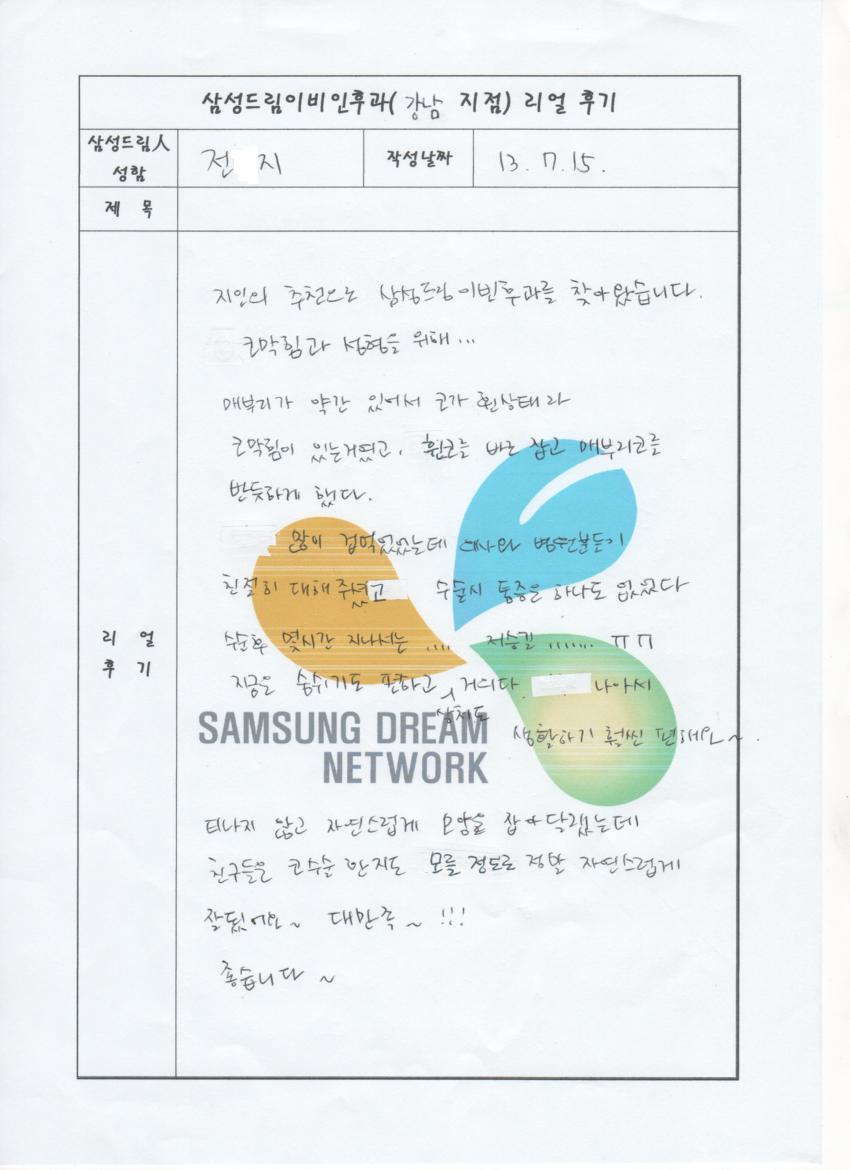 삼성드림이비인후과( 강남 지점) 리얼 후기
삼성드림人 성함
전 지
작성날짜
13. 7. 15.
제 목
리 얼 후 기
지인의 추천으로 삼성드림이빈후과를 찾아왔습니다.
코막힘과 성형을 위해...
매부리가 약간 있어서 코가 휜상태라
코막힘이 있는거였고, 휜코를 바로 잡고 매부리코를
반듯하게 했다.
많이 겁먹었었는데 의사와 병원분들이
친절히 대해주셨고 수술시 통증은 하나도 없었다
수술후 몇시간 지나서는 .... 저승길 ....... ㅠㅠ
지금은 숨쉬기도 편하고 상처도 거의다 나아서
생활하기 훨씬 편해요~.
SAMSUNG DREAM
NETWORK
티나지 않고 자연스럽게 모양을 잡아달랬는데
친구들은 코수술 한지도 모를 정도로 정말 자연스럽게
잘됐어요~ 대만족~ !!!
좋습니다 ~